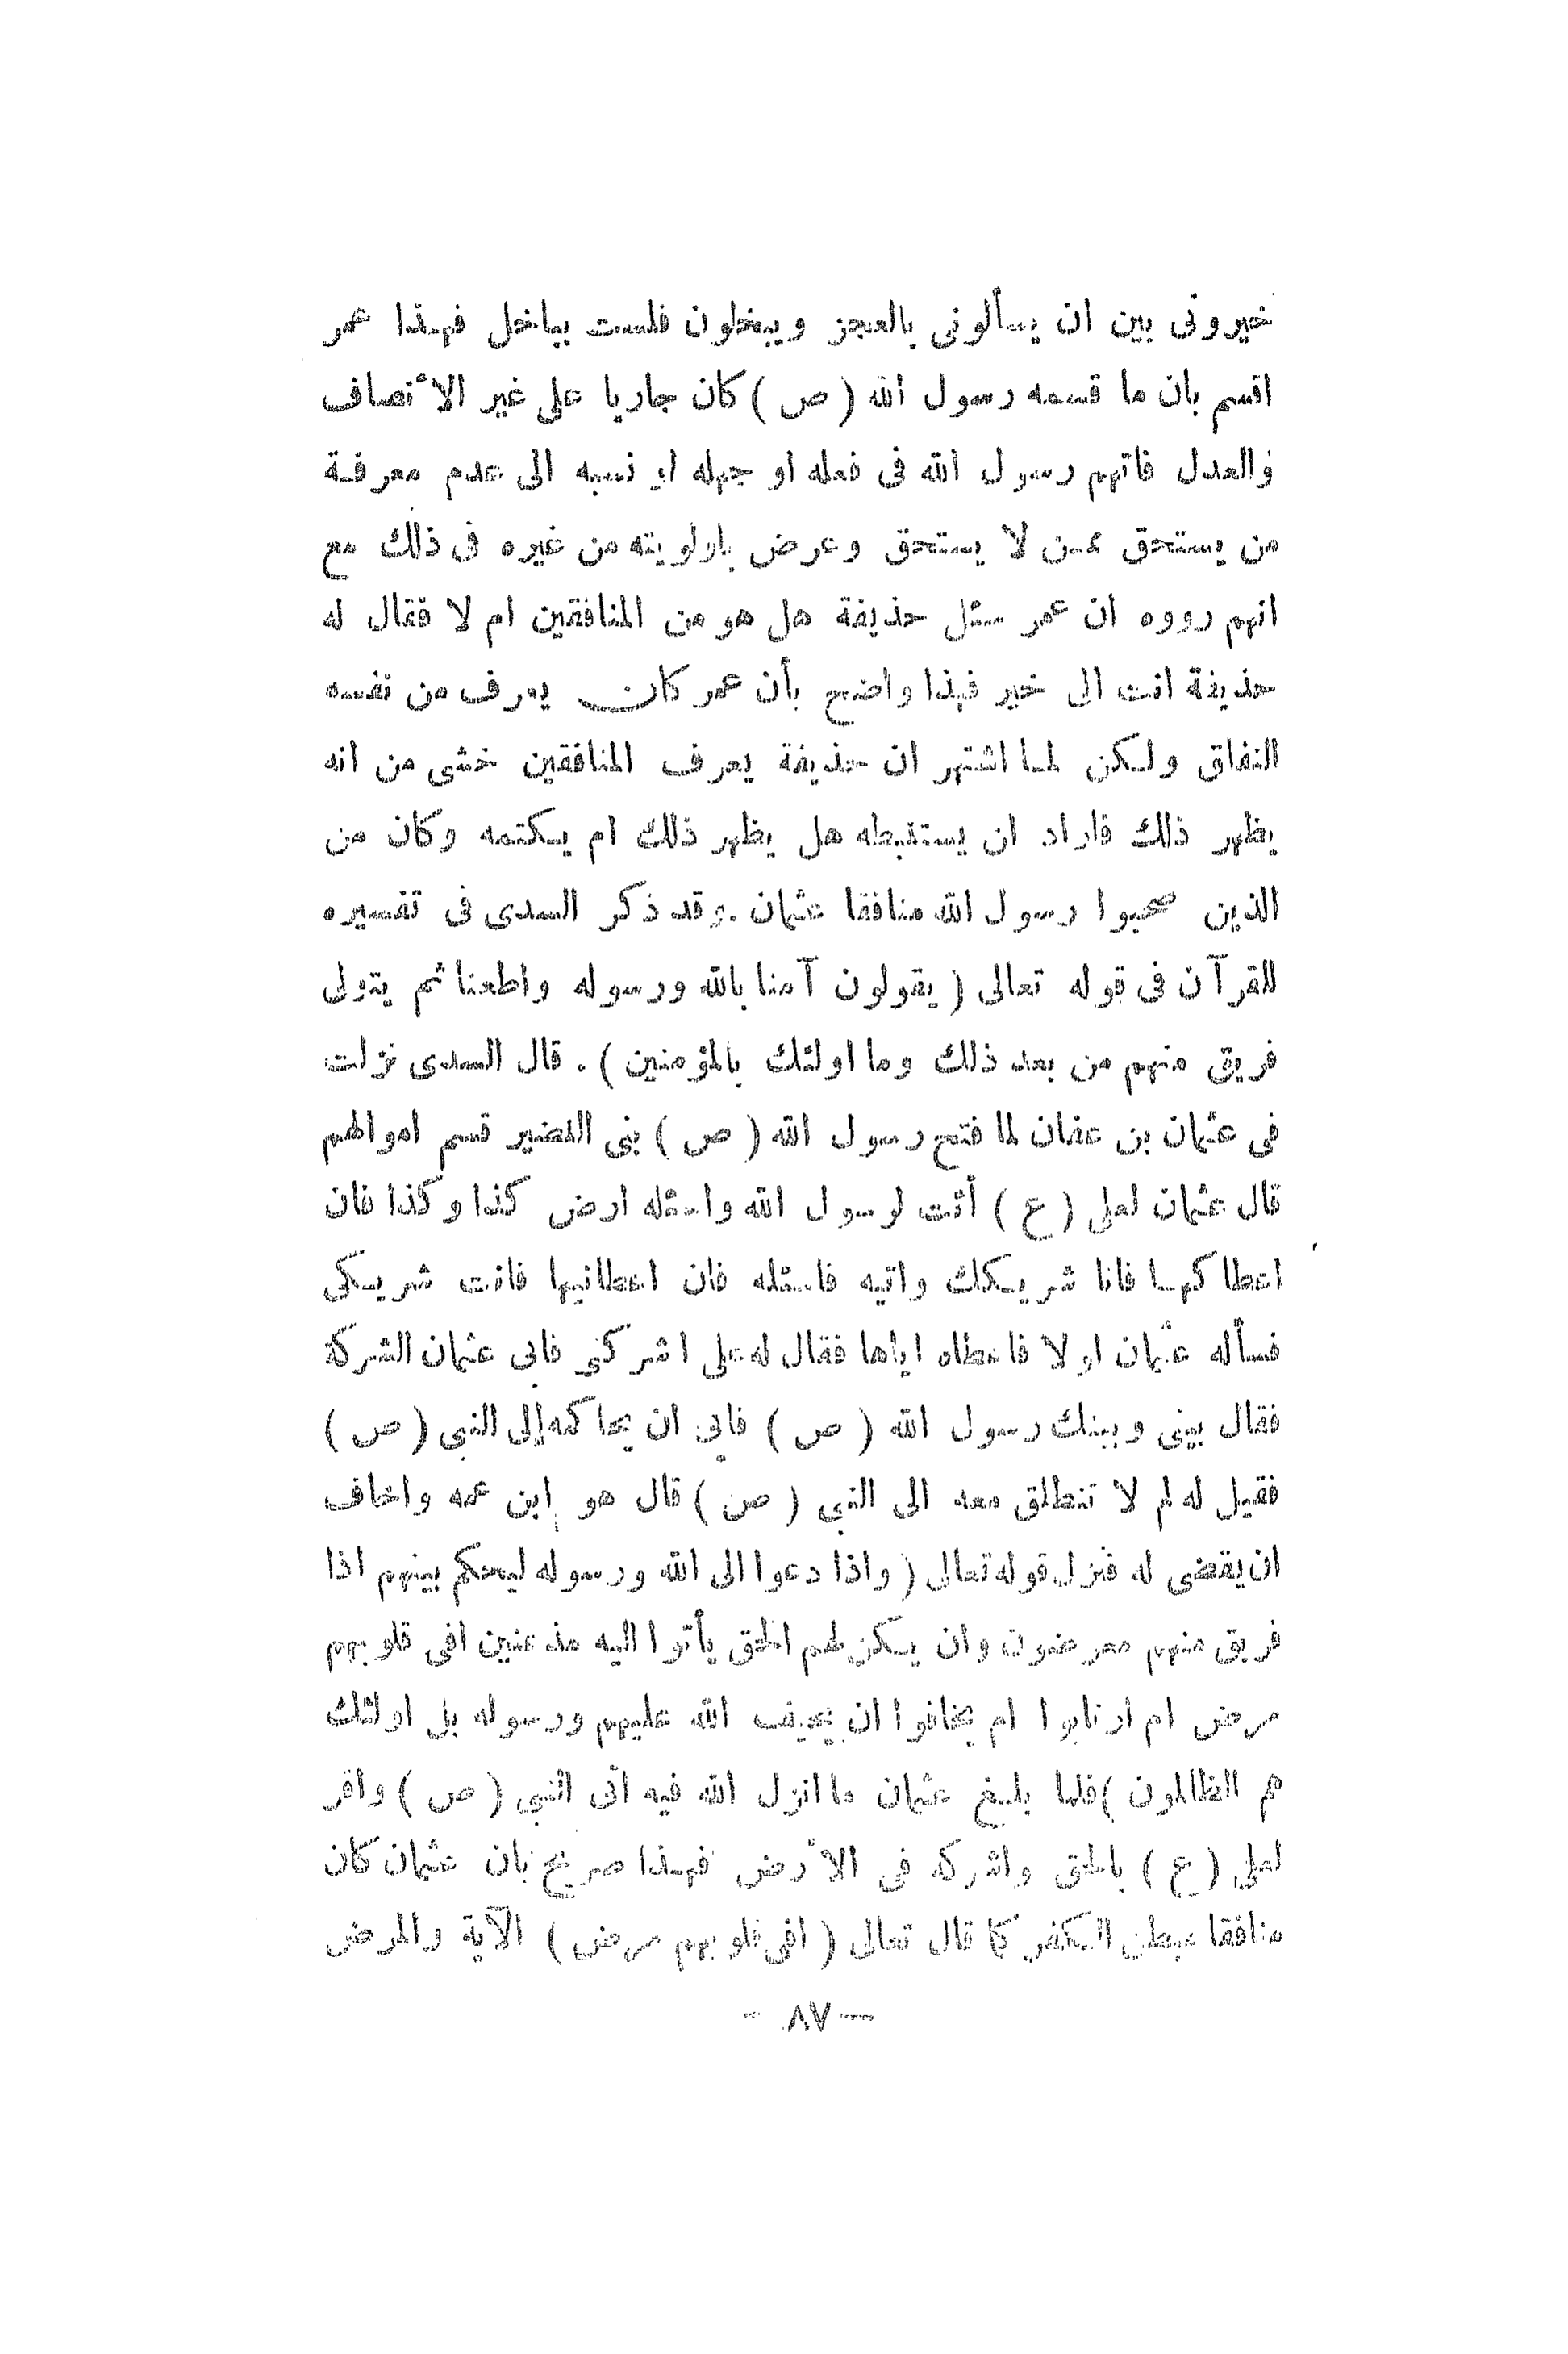 خيرونى بين ان يسألونى بالعجز ويبخلون فلست بباخل فهـذا عمر
اقسم بان ما قسمه رسول الله ( ص ) كان جاريا على غير الأنصاف
والعدل فاتهم رسول الله فى فعله او جهله او نسبه الى عدم معرفـة
من يستحق ممـن لا يستحق وعرض باولويته من غيره فى ذلك مع
انهم رووه ان عمر سئل حذيفة هل هو من المنافقين ام لا فقال له
حذيفة انت الى خير فهذا واضح بأن عمر كان يعرف من نفسه
النفاق ولـكن لمـا اشتهر ان حذيفة يعرف المنافقين خشى من انه
يظهر ذلك فاراد ان يستنبطه هل يظهر ذلك ام يـكتمه وكان من
الذين صحبوا رسول الله منافقا عثمان . وقد ذكر السدى فى تفسيره
للقرآن فى قوله تعالى ( يقولون آمنا بالله ورسوله واطعنا ثم يتولى
فريق منهم من بعد ذلك وما اولئك بالمؤمنين ) . قال السدى نزلت
فى عثمان بن عفان لما فتح رسول الله ( ص ) بنى النضير قسم اموالهم
قال عثمان لعلى ( ع ) أئت لرسول الله واسئله ارض كذا وكذا فان
اعطاكهـا فانا شريـكك واتيه فاسئله فان اعطانيها فانت شريـكى
فسأله عثمان اولا فاعطاه اياها فقال له على اشركنى فابى عثمان الشركة
فقال بينى وبينك رسول الله ( ص ) فابى ان يحاكمه إلى النبى ( ص )
فقيل له لم لا تنطلق معه الى النبى ( ص ) قال هو إبن عمه واخاف
ان يقضى له فنزل قوله تعالى ( واذا دعوا الى الله ورسوله ليحكم بينهم اذا
فريق منهم معرضون وان يـكن لهم الحق يأتوا اليه مذعنين افى قلوبهم
مرض ام ارتابوا ام يخافوا ان يحيف الله عليهم ورسوله بل اولئك
هم الظالمون ) فلما بلـغ عثمان ما انزل الله فيه اتى النبى ( ص ) واقر
لعلى ( ع ) بالحق واشركه فى الأرض فهـذا صريح بان عثمان كان
منافقا مبطن الـكفر كما قال تعالى ( افى قلوبهم مرض ) الآية والمرض
— ٨٧ —